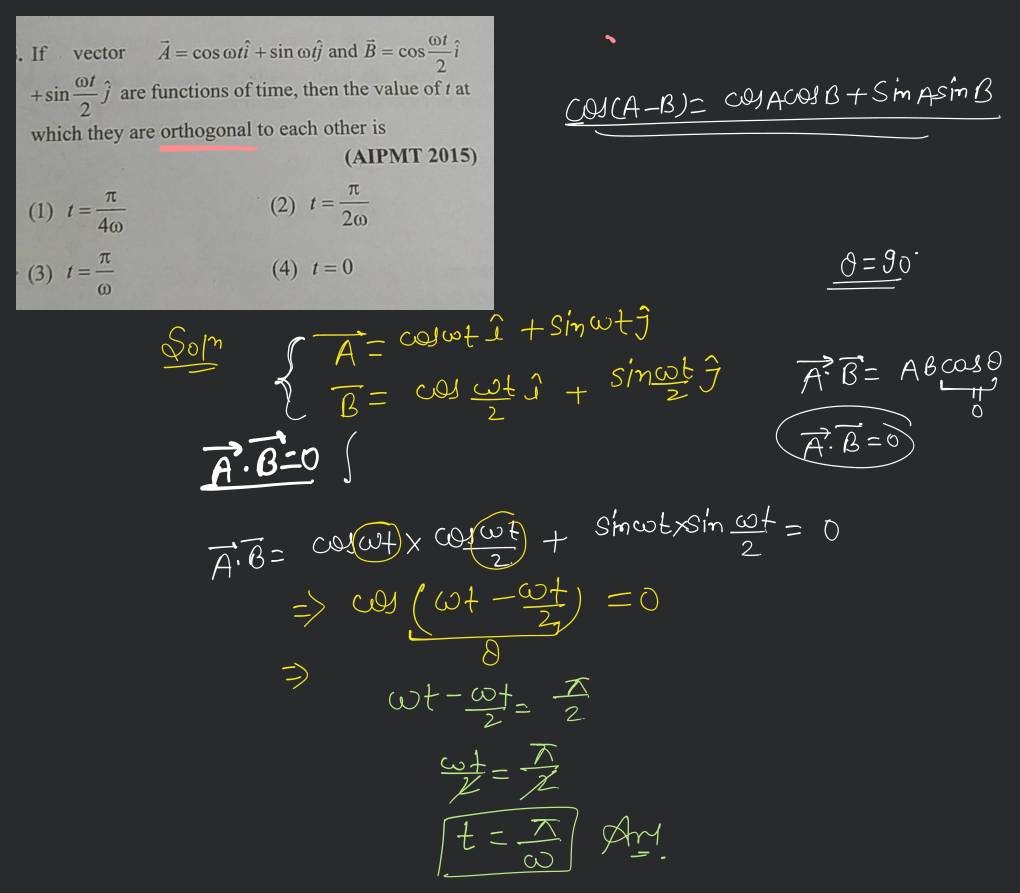 . If vector A⃗ = cos ωtî + sin ωtĵ and B⃗ = cos ωt/2 î
+ sin ωt/2 ĵ are functions of time, then the value of t at
which they are orthogonal to each other is
(AIPMT 2015)
(1) t = π/4ω (2) t = π/2ω
(3) t = π/ω (4) t = 0
cos(A-B) = cosAcosB + SinAsinB
θ = 90°
Soln
A⃗ = cosωt î + Sinωt ĵ
B⃗ = cos ωt/2 î + sin ωt/2 ĵ
A⃗.B⃗ = ABcosθ
0
A⃗.B⃗ = 0
A⃗.B⃗ = 0
A⃗.B⃗ = cosωt × cos ωt/2 + Sinωt × sin ωt/2 = 0
⇒ cos (ωt - ωt/2) = 0
θ
⇒
ωt - ωt/2 = π/2
ωt/2 = π/2
t = π/ω Ans.